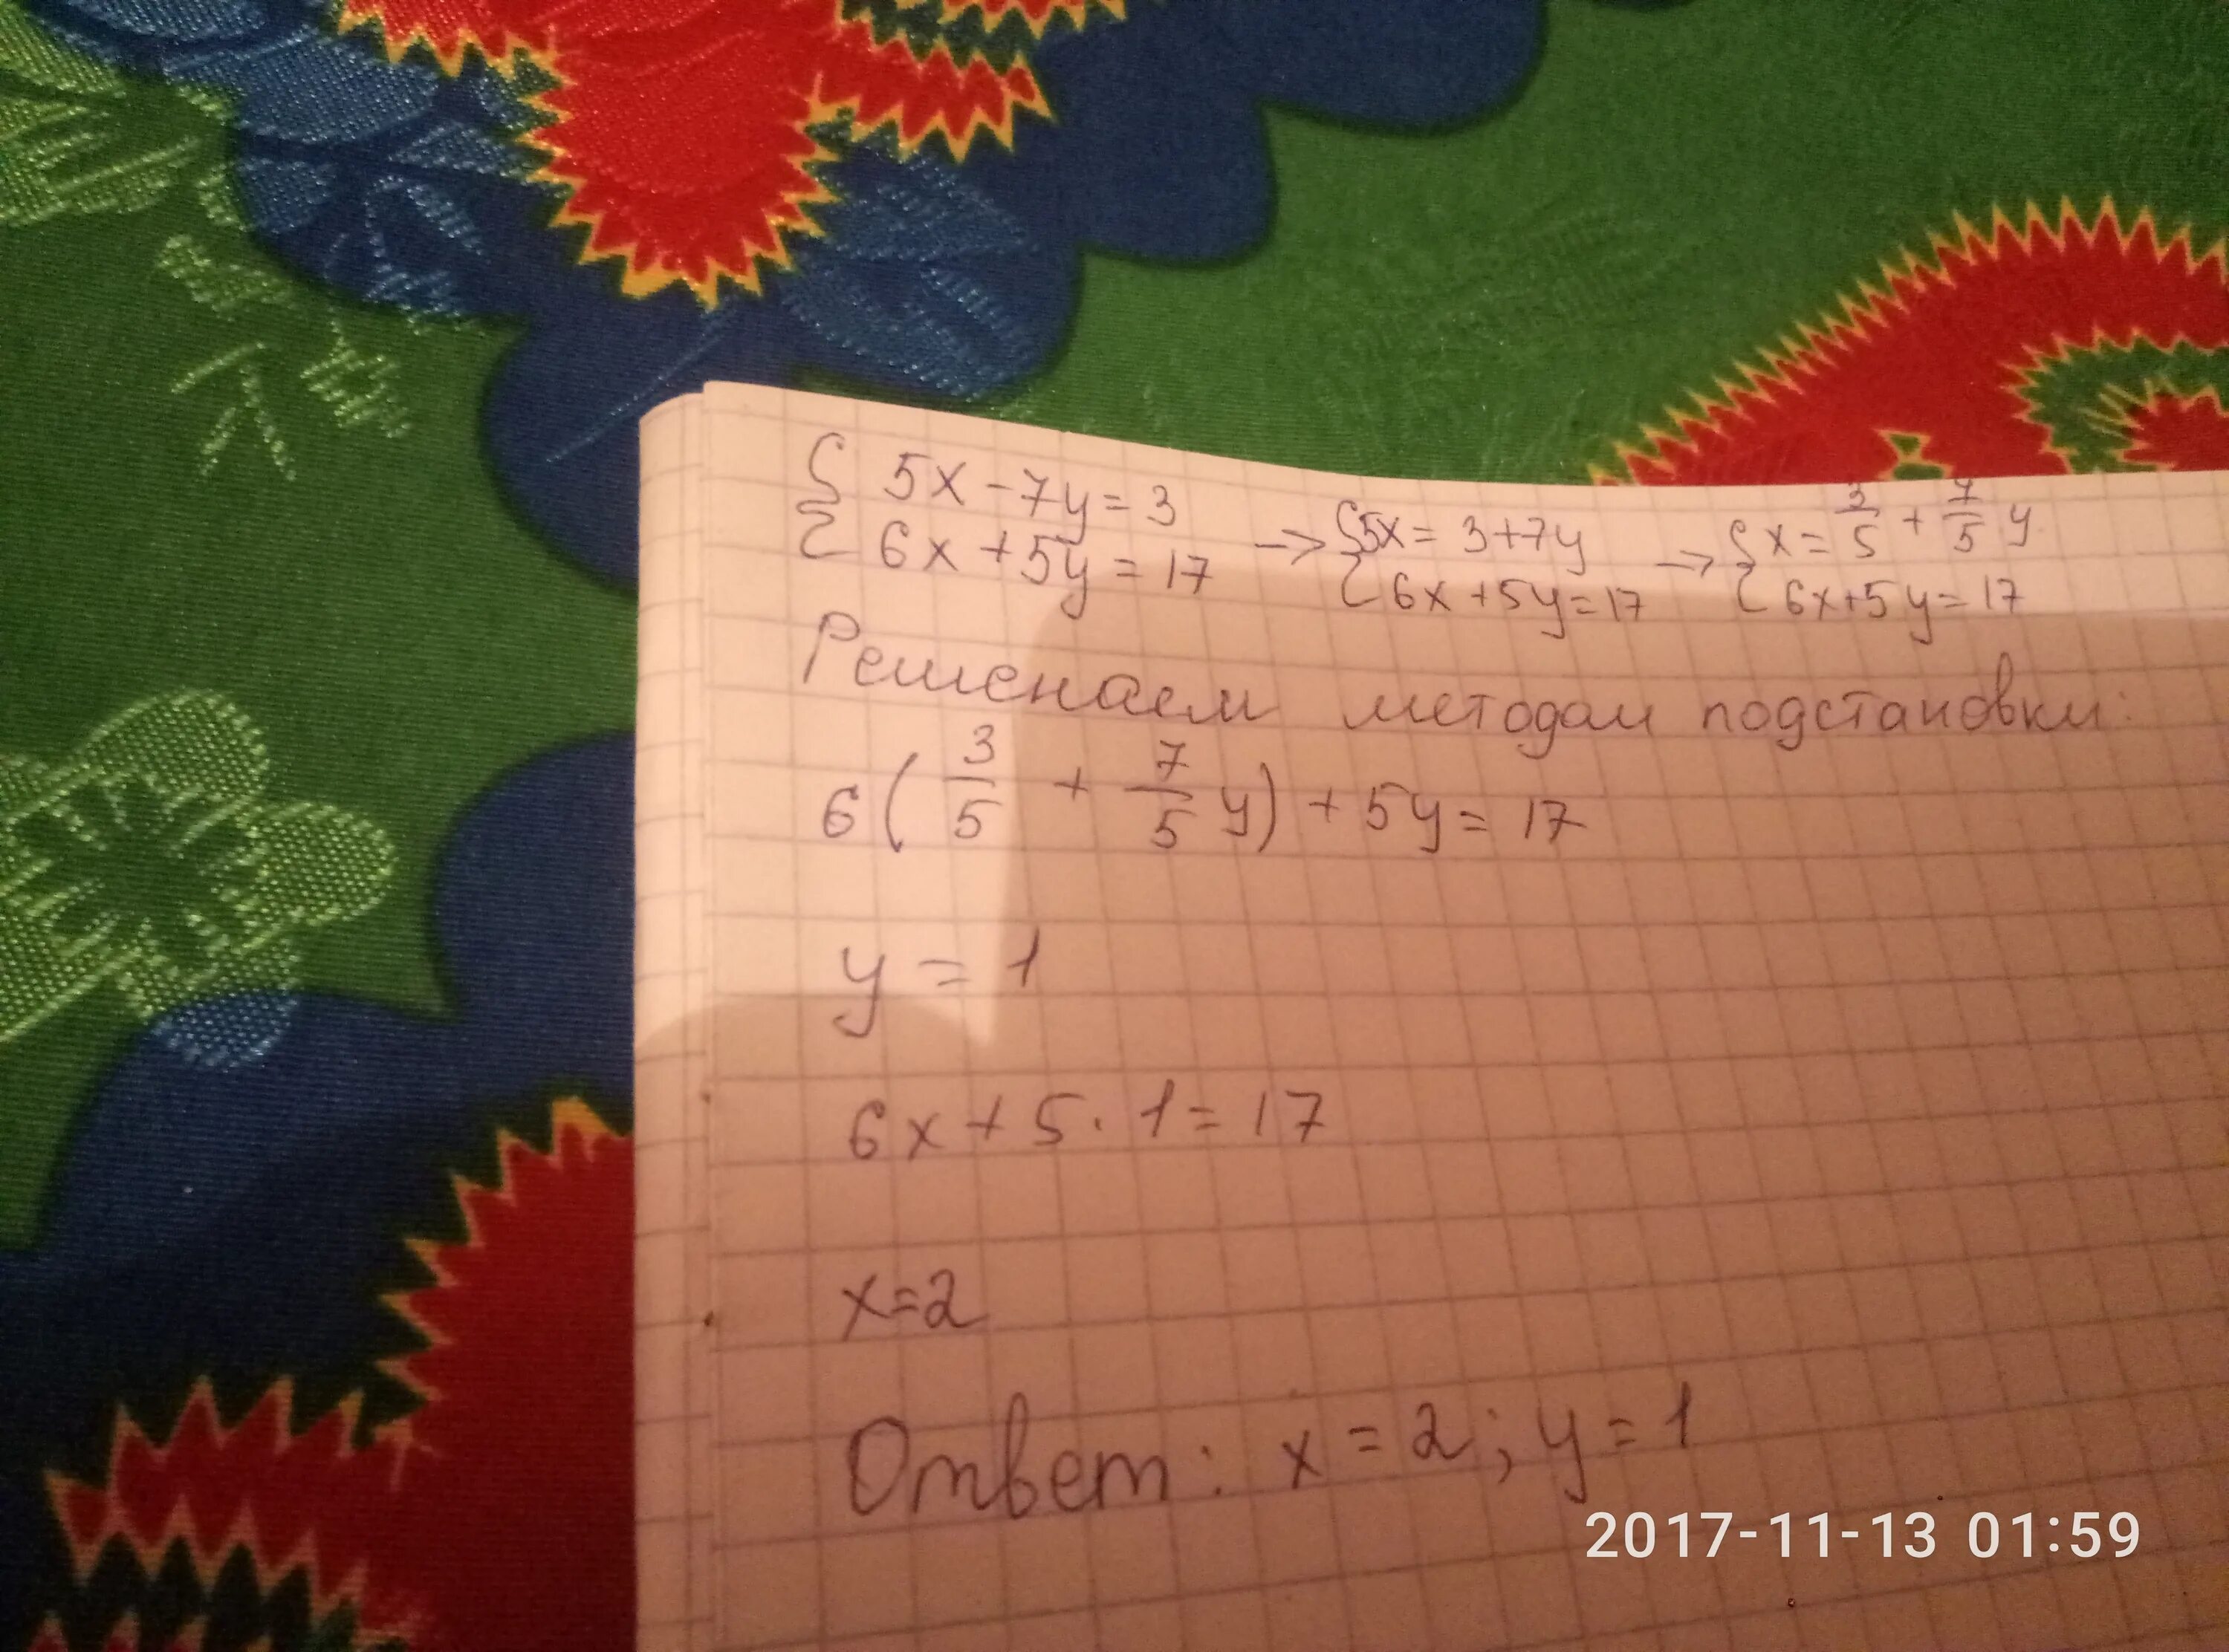 { 5x - 7y = 3
6x + 5y = 17 → { 5x = 3 + 7y
6x + 5y = 17 → { x = 3/5 + 7/5 y
6x + 5y = 17
Решенаем методом подстановки:
6(3/5 + 7/5 y) + 5y = 17
y = 1
6x + 5 · 1 = 17
x = 2
Ответ: x = 2; y = 1
2017-11-13 01:59